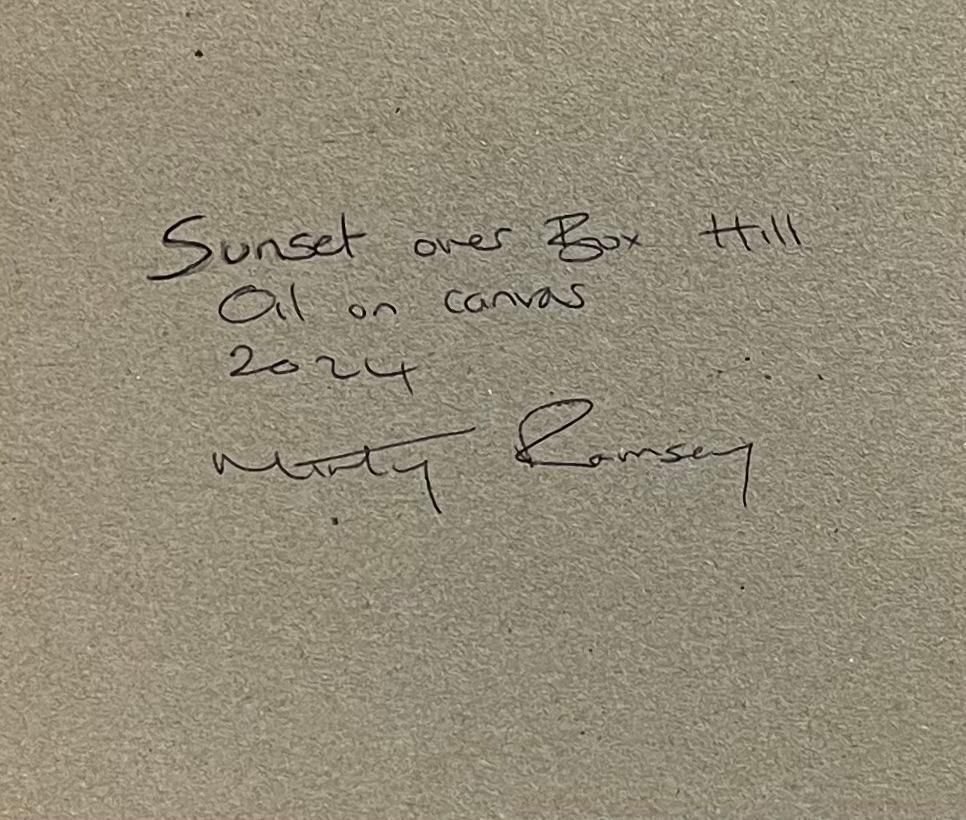 Sunset over Box Hill
Oil on canvas
2024
Ramsey